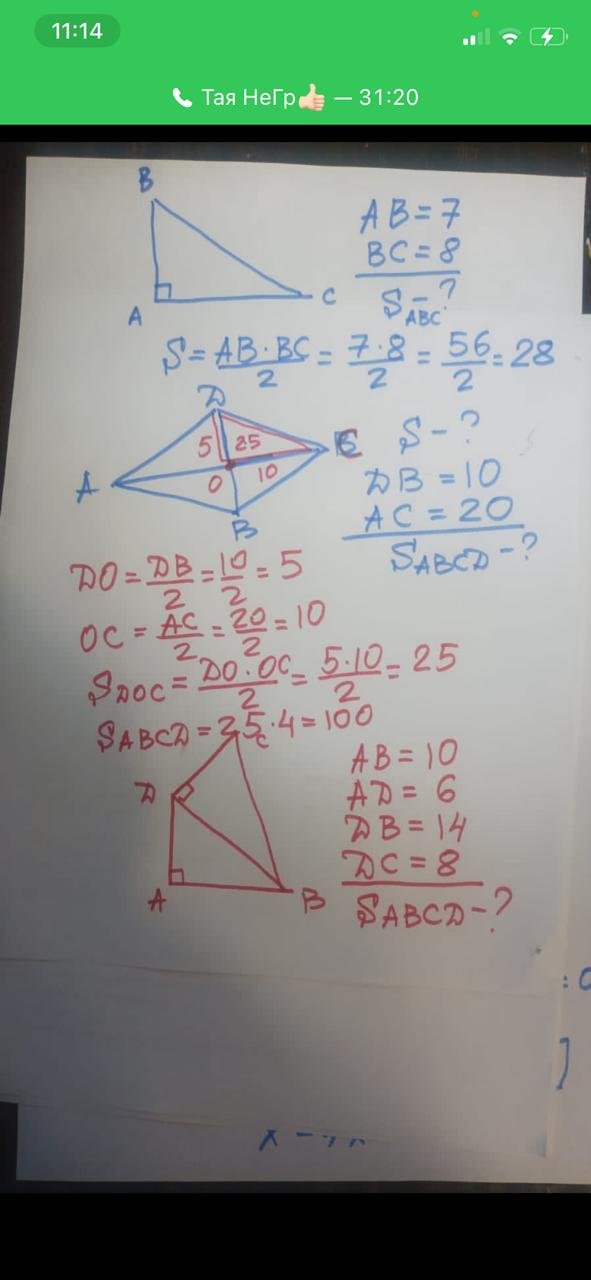 11:14
Тая НеГр👍🏻 — 31:20
B
A
C
AB = 7
BC = 8
S ABC - ?
S = AB · BC / 2 = 7 · 8 / 2 = 56 / 2 = 28
D
5 25
A
O 10
C
B
S - ?
DB = 10
AC = 20
S ABCD - ?
DO = DB / 2 = 10 / 2 = 5
OC = AC / 2 = 20 / 2 = 10
S DOC = DO · OC / 2 = 5 · 10 / 2 = 25
S ABCD = 25 · 4 = 100
C
D
A
B
AB = 10
AD = 6
DB = 14
DC = 8
S ABCD - ?